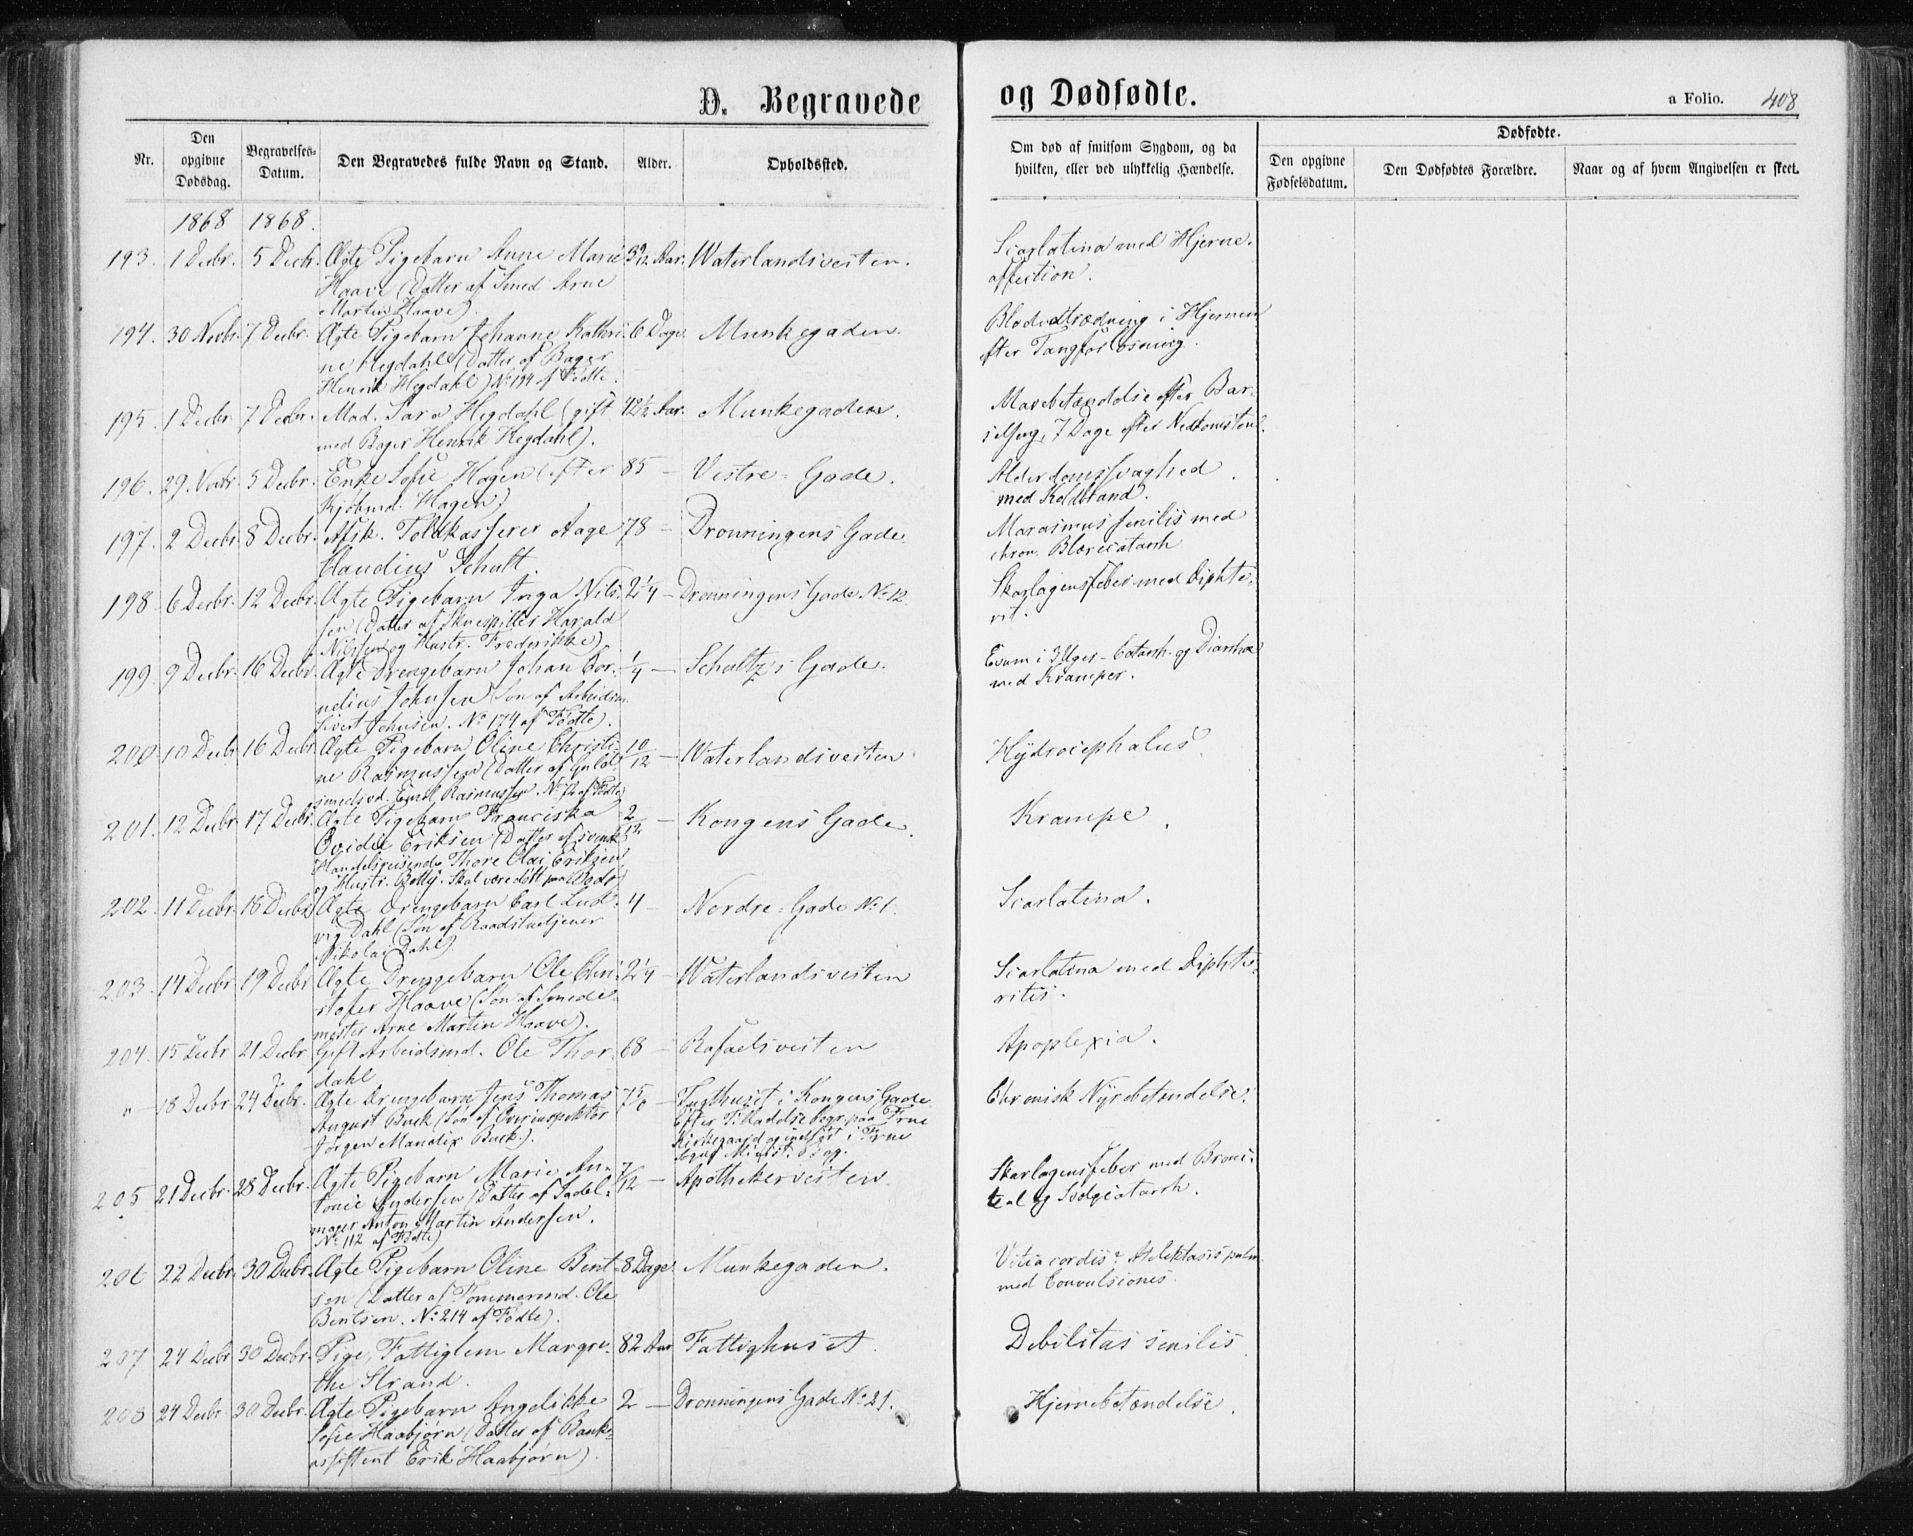 D. Begravede og Dødfødte.
a Folio. 408
Nr.
Den opgivne Dødsdag.
Begravelses-Datum.
Den Begravedes fulde Navn og Stand.
Alder.
Opholdssted.
Om død af smitsom Sygdom, og da hvilken, eller ved ulykkelig Hændelse.
Dødfødte.
Den opgivne Fødselsdatum.
Den Dødfødtes Forældre.
Naar og af hvem Angivelsen er skeet.
1868 1868.
193. 1 Decbr. 5 Decbr. Ægte Pigebarn Anne Marie 3 9/12 Aar. Waterlandsveiten. Scarlatina med Hjerne-
Haave (Datter af Smed Arne affection.
Martin Haave).
194. 30 Novbr. 7 Decbr. Ægte Pigebarn Johanne Kathri- 6 Dage. Munkegaden. Blodudtrædning i Hjernen
ne Hegdahl (Datter af Bager efter Tangforløsning.
Henrik Hegdahl) No 194 af Fødte.
195. 1 Decbr. 7 Decbr. Mad. Sara Hegdahl (gift 42 1/2 Aar. Munkegaden. Mavebetændelse efter Bar-
med Bager Henrik Hegdahl). selseng, 7 Dage efter Nedkomsten.
196. 29 Novbr. 5 Decbr. Enke Sofie Hagen (efter 85 — Vestre-Gade. Alderdomssvaghed
Kjøbmd. Hagen) med Koldbrand.
197. 2 Decbr. 8 Decbr. Afsk. Toldkasserer Aage 78 — Dronningens Gade Marasmus senilis med
Claudius Schult. chron. Blærecatarrh
198. 6 Decbr. 12 Decbr. Ægte Pigebarn Inga Nils- 2 1/4 — Dronningens Gade No 12. Skarlagensfeber med Diphte-
sen (Datter af Skuespiller Harald rit.
Nilssen og Hustr. Frederikke)
199. 9 Decbr. 16 Decbr. Ægte Drengebarn Johan Cor- 1/4 — Schultz's Gade. i 3 Uger - Catarrh. og Diarrhæ
nelius Johnsen (Søn af Arbeidsm. med Kramper.
Sivert Johnsen. No 174 af Fødte).
200. 10 Decbr. 16 Decbr. Ægte Pigebarn Oline Christi- 10/12 — Waterlandsveiten Hydrocephalus.
ne Rasmussen (Datter af Guld-
smedsvd. Emil Rasmussen. No 72 af Fødte)
201. 12 Decbr. 17 Decbr. Ægte Pigebarn Franciska 2/12 — Kongens Gade. Krampe.
Ovidie Eriksen (Datter af svensk
Handelsreisende Thore Olai Eriksen
og Hustr. Betty. Skal være døbt paa Bodø)
202. 11 Decbr. 18 Decbr. Ægte Drengebarn Carl Lud- 4 — Nordre-Gade No 1. Scarlatina.
vig Dahl (Søn af Raadstuetjener
Nikolai Dahl).
203. 14 Decbr. 19 Decbr. Ægte Drengebarn Ole Chri- 2 1/4 — Waterlandsveiten Scarlatina med Diphte-
stofer Haave (Søn af Smede- ritis.
mester Arne Martin Haave).
204. 15 Decbr. 21 Decbr. Gift Arbeidsmd. Ole Thor- 68 — Rafaelsveiten Apoplexia.
dahl
" — 18 Decbr. 24 Decbr. Ægte Drengebarn Jens Thomas — Tugthuset i Kongens Gade. Chronisk Nyrebetændelse.
August Buck (Søn af Overinspektør Efter Tilladelse begr. paa Frue
Jörgen Mandix Buck). Kirkegaard og indført i Frue
Sogns Minist. Bog.
205 21 Decbr. 28 Decbr. Ægte Pigebarn Marie An- 7/12 — Apothekerveiten. Skarlagensfeber med Bronc-
tonie Andersen (Datter af Sadel-
mager Anton Martin Andersen.
No 112 af Fødte)
206 22 Decbr. 30 Decbr. Ægte Pigebarn Oline Bent- 8 Dage. Munkegaden. Vitia cordis? Atelektasis pulm
sen (Datter af Tømmermd. Ole med Convulsiones.
Bentsen. No 214 af Fødte).
207 24 Decbr. 30 Decbr. Pige, Fattiglem Margre- 82 Aar Fattighuset. Debilitas senilis
the Strand.
208 24 Decbr. 30 Decbr. Ægte Pigebarn Angelikke 2 — Dronningens Gade No 21. Hjernebetændelse.
Sofie Haabjørn (Datter af Bank-
assistent Erik Haabjørn).